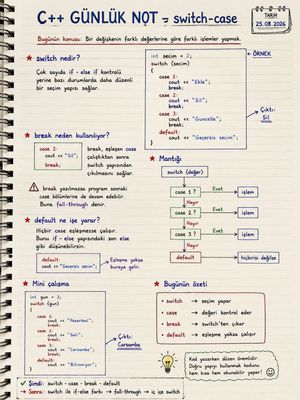 C++ GÜNLÜK NOT - switch-case
TARİH
25.08.2026
Bugünün konusu: Bir değişkenin farklı değerlerine göre farklı işlemler yapmak.
★ switch nedir?
Çok sayıda if - else if kontrolü
yerine bazı durumlarda daha düzenli
bir seçim yapısı sağlar.
ÖRNEK
int secim = 2;
switch (secim)
{
case 1:
cout << "Ekle";
break;
case 2:
cout << "Sil";
break;
case 3:
cout << "Guncelle";
break;
default:
cout << "Geçersiz secim";
}
Çıktı:
Sil
★ break neden kullanılıyor?
case 2:
cout << "Sil";
break;
break, eşleşen case
çalıştıktan sonra
switch yapısından
çıkılmasını sağlar.
⚠ break yazılmazsa program sonraki
case bölümlerine de devam edebilir.
Buna fall-through denir.
★ Mantığı
switch (değer)
case 1 ?
Evet
işlem
Hayır
case 2 ?
Evet
işlem
Hayır
case 3 ?
Evet
işlem
Hayır
default
hiçbirisi değilse
★ default ne işe yarar?
Hiçbir case eşleşmezse çalışır.
Bunu if - else yapısındaki son else
gibi düşünebilirsin.
default:
cout << "Gecersiz secim";
Eşleşme yoksa
buraya gelir.
★ Mini çalışma
int gun = 3;
switch (gun)
{
case 1:
cout << "Pazartesi";
break;
case 2:
cout << "Sali";
break;
case 3:
cout << "Carsamba";
break;
default:
cout << "Bilinmiyor";
}
Çıktı:
Carsamba
★ Bugünün özeti
• switch → seçim yapar
• case → değeri kontrol eder
• break → switch'ten çıkar
• default → eşleşme yoksa çalışır
Kod yazarken düzen önemlidir.
Doğru yapıyı kullanmak kodunu
hem kısa hem okunabilir yapar!
✓ Şimdi: switch - case - break - default
→ Sonra: switch ile if-else farkı → fall-through → iç içe switch